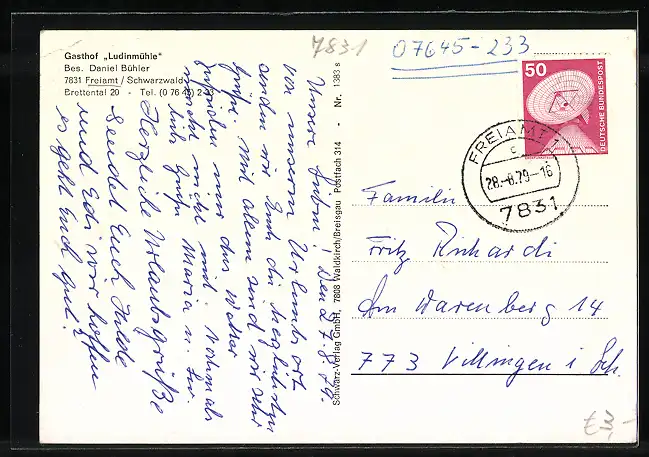 7831
07645-233
Gasthof „Ludinmühle“
Bes. Daniel Bühler
7831 Freiamt / Schwarzwald
Brettental 20 - Tel. (0 76 45) 2
50
DEUTSCHE BUNDESPOST
FREIAMT 1
c
28.-8.79-16
7831
Unsere Lieben! Den 27.8.79.
Von unserem Urlaubsort
senden wir Euch die herzlichsten
Grüße. Mit allem sind wir sehr
zufrieden nur das Wetter
macht nicht mit. Nochmals
liebe Grüße Maria u.
Herzliche Urlaubsgrüße
sendet Euch Hilde
und Edi wir hoffen
es geht Euch gut!
Schwarz-Verlag GmbH, 7808 Waldkirch/Breisgau Postfach 314 - Nr. 1383 s
Familie
Fritz Richardi
Am Warenberg 14
773 Villingen i. Sch.